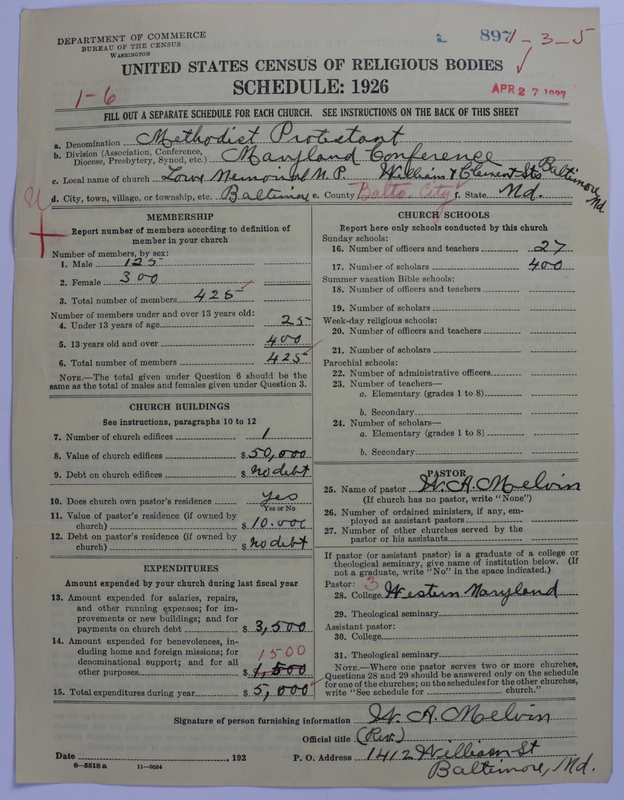 DEPARTMENT OF COMMERCE
BUREAU OF THE CENSUS
WASHINGTON
2 897 1-3-5
UNITED STATES CENSUS OF RELIGIOUS BODIES
SCHEDULE: 1926
1-6
APR 27 1927
FILL OUT A SEPARATE SCHEDULE FOR EACH CHURCH. SEE INSTRUCTIONS ON THE BACK OF THIS SHEET
a. Denomination Methodist Protestant
b. Division (Association, Conference, Diocese, Presbytery, Synod, etc.) Maryland Conference
c. Local name of church Lowe Memorial M. P. William & Clement Sts Baltimore, Md
d. City, town, village, or township, etc. Baltimore e. County Balto. City f. State Md.
MEMBERSHIP
Report number of members according to definition of
member in your church
Number of members, by sex:
1. Male 125
2. Female 300
3. Total number of members 425
Number of members under and over 13 years old:
4. Under 13 years of age 25
5. 13 years old and over 400
6. Total number of members 425
NOTE.—The total given under Question 6 should be
same as the total of males and females given under Question 3.
CHURCH BUILDINGS
See instructions, paragraphs 10 to 12
7. Number of church edifices 1
8. Value of church edifices $ 50,000
9. Debt on church edifices $ no debt
10. Does church own pastor's residence Yes
Yes or No
11. Value of pastor's residence (if owned by
church) $ 10.000
12. Debt on pastor's residence (if owned by
church) $ no debt
EXPENDITURES
Amount expended by your church during last fiscal year
13. Amount expended for salaries, repairs,
and other running expenses; for im-
provements or new buildings; and for
payments on church debt $ 3,500
14. Amount expended for benevolences, in-
cluding home and foreign missions; for
denominational support; and for all
other purposes 1500 $ 1,500
15. Total expenditures during year $ 5,000
CHURCH SCHOOLS
Report here only schools conducted by this church
Sunday schools:
16. Number of officers and teachers 27
17. Number of scholars 400
Summer vacation Bible schools:
18. Number of officers and teachers
19. Number of scholars
Week-day religious schools:
20. Number of officers and teachers
21. Number of scholars
Parochial schools:
22. Number of administrative officers
23. Number of teachers—
a. Elementary (grades 1 to 8)
b. Secondary
24. Number of scholars—
a. Elementary (grades 1 to 8)
b. Secondary
PASTOR
25. Name of pastor W. A. Melvin
(If church has no pastor, write "None")
26. Number of ordained ministers, if any, em-
ployed as assistant pastors
27. Number of other churches served by the
pastor or his assistants
If pastor (or assistant pastor) is a graduate of a college or
theological seminary, give name of institution below. (If
not a graduate, write "No" in the space indicated.)
Pastor: 3
28. College Western Maryland
29. Theological seminary
Assistant pastor:
30. College
31. Theological seminary
NOTE.—Where one pastor serves two or more churches,
Questions 28 and 29 should be answered only on the schedule
for one of the churches; on the schedules for the other churches,
write "See schedule for church."
Signature of person furnishing information W. A. Melvin
Official title (Rev.)
Date , 192 P. O. Address 1412 William St
Baltimore, Md.
8-5518 a 11-9054